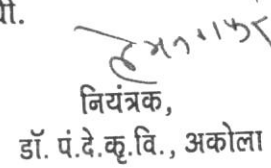 यी.
नियंत्रक,
डॉ. पं.दे.कृ.वि., अकोला